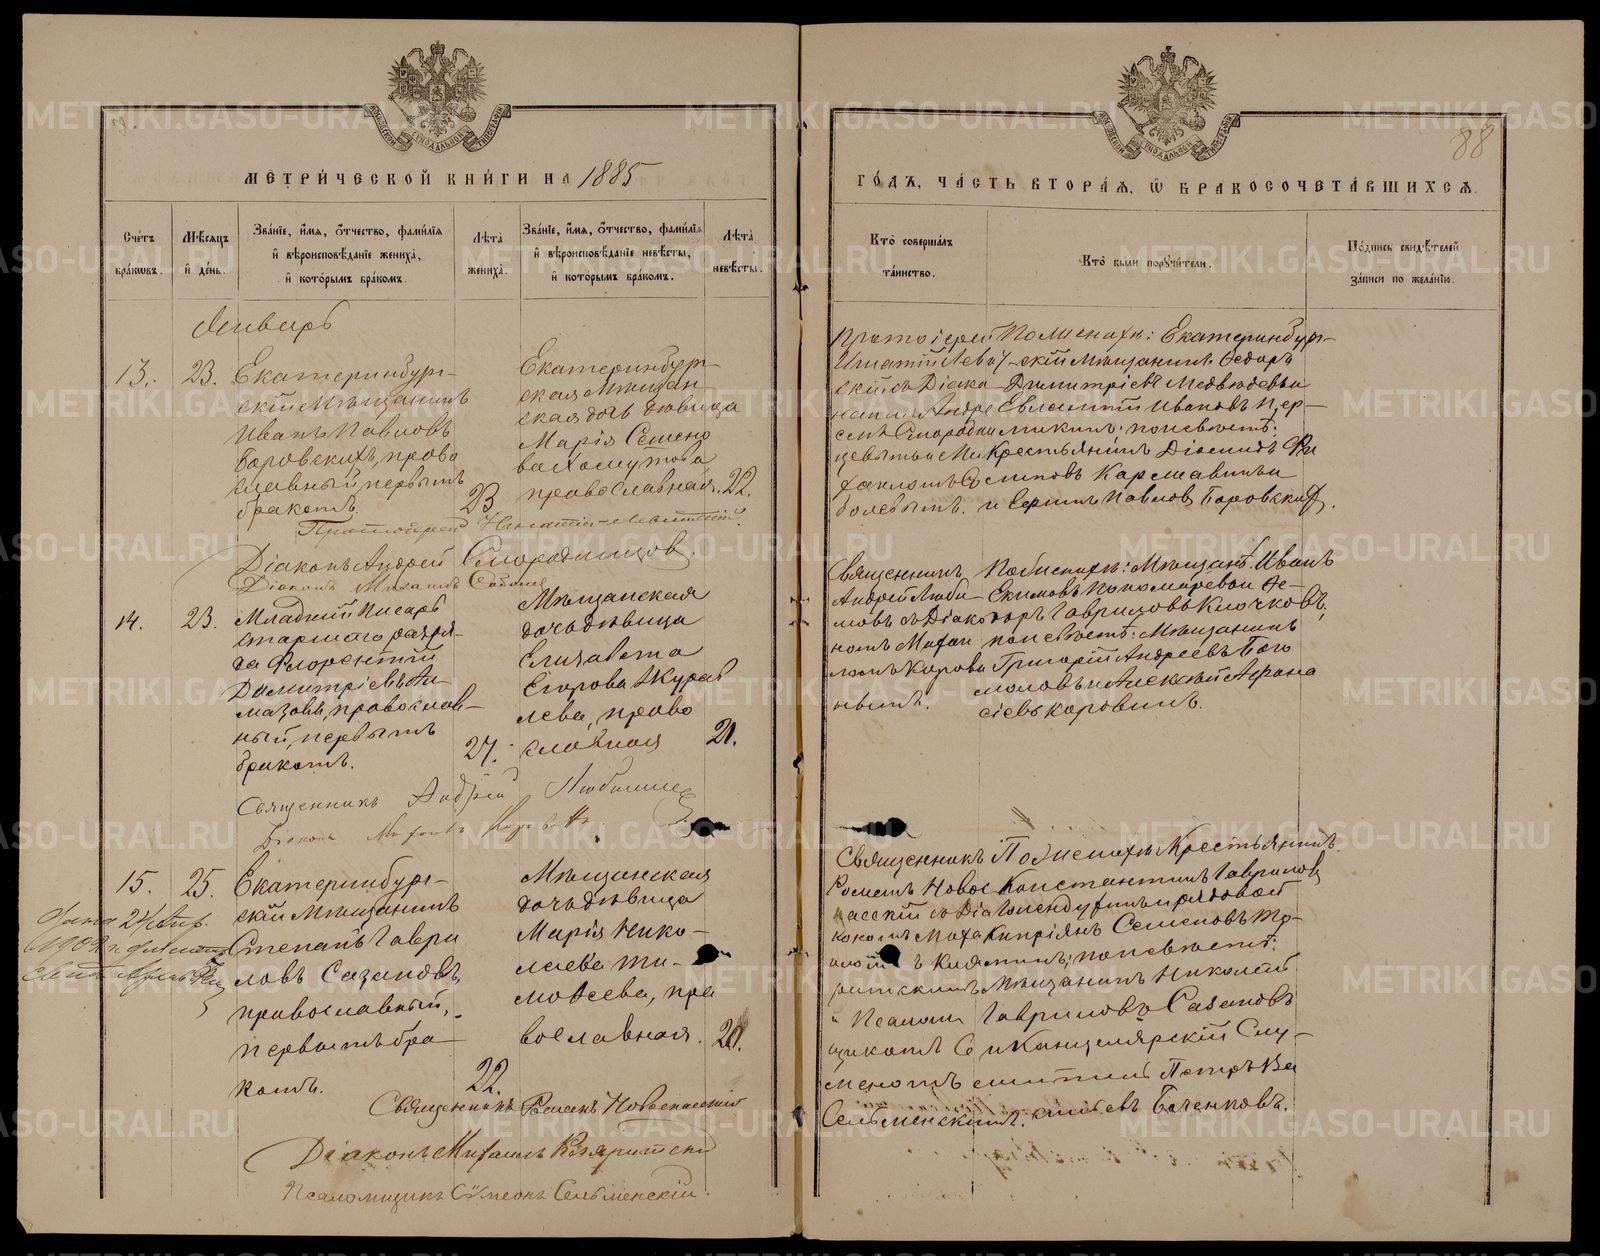 МЕТРИ́ЧЕСКОЙ КНИ́ГИ НА 1885
Сче́тъ бра́ковъ.
Мѣ́сяцъ и де́нь.
Зва́нїе, и́мя, ѻ҆́тчество, фами́лїя и вѣроисповѣ́данїе жениха̀, и кото́рымъ бра́комъ.
Лѣта̀ жениха̀.
Зва́нїе, и́мя, ѻ҆́тчество, фами́лїя и вѣроисповѣ́данїе невѣ́сты, и кото́рымъ бра́комъ.
Лѣта̀ невѣ́сты.
Январь
13. 23.
Екатеринбург-
скій мѣщанинъ
Иванъ Павловъ
Боровскихъ, право
славный, первымъ
бракомъ.
23
Екатеринбург-
ская мѣщан
ская дочь дѣвица
Марія Семено
ва Хомутова
православная. 22.
Протоіерей Игнатій Левитскій.
Діаконъ Андрей Смородинцов.
Діаконъ Михаилъ
14. 23.
Младшій писарь
старшаго разря-
да Флорентій
Димитріевъ Ал-
мазовъ, православ-
ный, первымъ
бракомъ.
27.
Мѣщанская
дочь дѣвица
Елизавета
Егорова Журав
лева, право
славная 21.
Священникъ Андрей Любимов
Діаконъ
15. 25.
Екатеринбург-
скій мѣщанинъ
Степанъ Гаври
ловъ Сазановъ,
православный,
первымъ бра-
комъ.
22.
Мѣщанская
дочь дѣвица
Марія Нико-
лаева Ти-
моѳеева, пра
вославная. 20.
Священникъ Романъ Новоспасскій
Діаконъ Михаилъ
Псаломщикъ Сѷмеонъ Сельменскій.
88
ГО́ДЪ, ЧА́СТЬ ВТОРА́Я, Ѽ БРАКОСОЧЕТА́ВШИХСЯ.
Кто̀ соверша́лъ та́инство.
Кто̀ были поручи́тели.
По́дпись свидѣ́телей за́писи по жела́нїю.
Протоіерей
Игнатій Левит
скій съ Діако
нами Андре
емъ Смородин
цевымъ и Ми
хаиломъ
По женихѣ: Екатеринбург-
скій мѣщанинъ Ѳедоръ
Димитріевъ Медвѣдевъ и
Евлампій Ивановъ Пер-
микинъ; по невѣстѣ:
Крестьянинъ Діомидъ Фи
липовъ Кармавинъ и
и Сергѣй Павлов Боровских.
Священникъ
Андрей Люби-
мовъ съ Діако
номъ Михаи
ломъ
По женихѣ: Мѣщане: Иванъ
Екимовъ Пономаревъ и Ѳе-
доръ Гавриловъ Клочковъ,
по невѣстѣ: Мѣщанинъ
Григорій Андреевъ Бого
моловъ и Алексѣй Аѳана
сіевъ Коровинъ.
Священникъ
Романъ Новос
пасскій съ Діа
кономъ Миха
иломъ
и Псалом
щикомъ Сѷ
меономъ
Сельменскимъ.
По женихѣ Крестьянинъ
Константинъ Гаврилов
и рядовой
Кипріянъ Семеновъ
по невѣстѣ:
мѣщанинъ Николай
Гавриловъ Сазановъ
и Канцелярскій Слу-
житель Петръ Ва
сильевъ Баченковъ.
METRIKI.GASO-URAL.RU